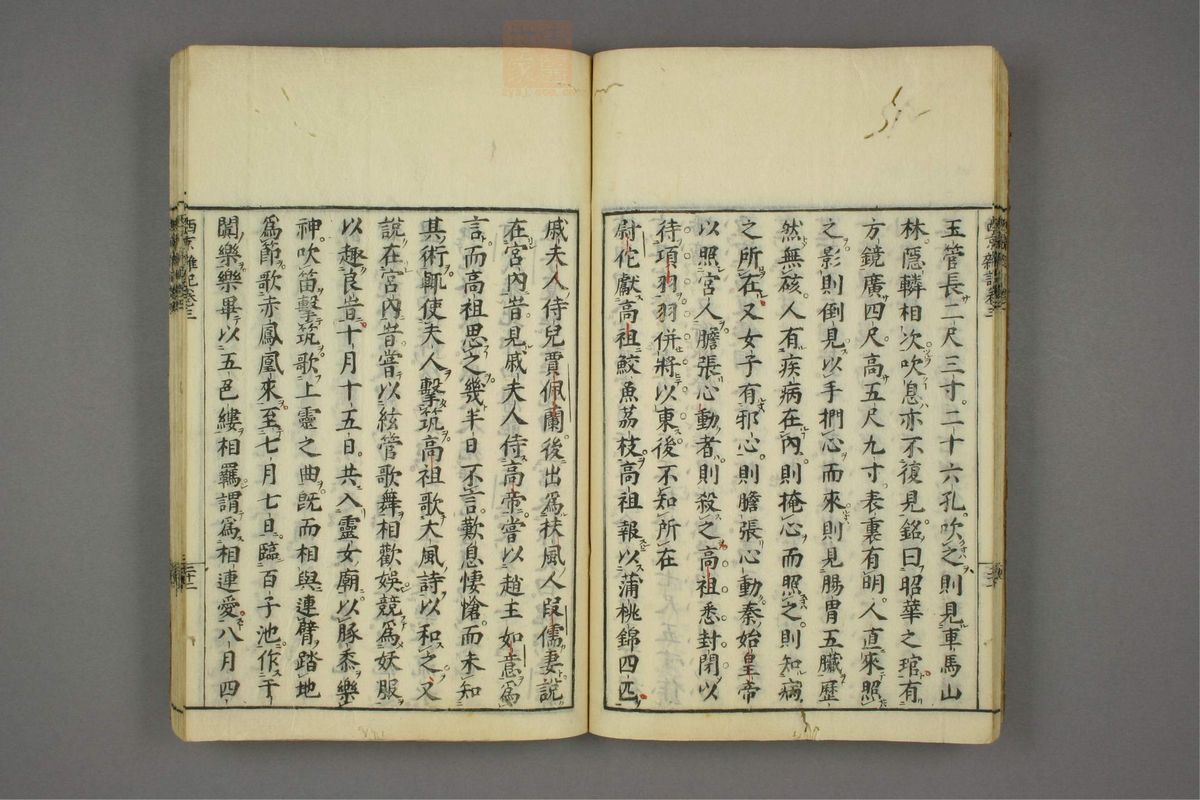 玉管長二尺三寸二十六孔吹之則見車馬山
林隱轔相次吹息亦不復見銘曰昭華之琯有
方鏡廣四尺高五尺九寸表裏有明人直來照
之影則倒見以手捫心而來則見腸胃五臟歷
然無硋人有疾病在內則掩心而照之則知病
之所在又女子有邪心則膽張心動秦始皇帝
以照宮人膽張心動者則殺之高祖悉封閉以
待項羽羽併將以東後不知所在
尉佗獻高祖鮫魚荔枝高祖報以蒲桃錦四匹
戚夫人侍兒賈佩蘭後出爲扶風人段儒妻說
在宮內昔見戚夫人侍高帝嘗以趙王如意爲
言而高祖思之幾半日不言歎息悽愴而未知
其術輒使夫人擊筑高祖歌大風詩以和之又
說在宮內昔嘗以絃管歌舞相歡娛競爲妖服
以趣良昔十月十五日共入靈女廟以豚黍樂
神吹笛擊筑歌上靈之曲既而相與連臂踏地
爲節歌赤鳳凰來至七月七日臨百子池作于
闐樂樂畢以五色縷相羈謂爲相連愛八月四
西京雜記卷三